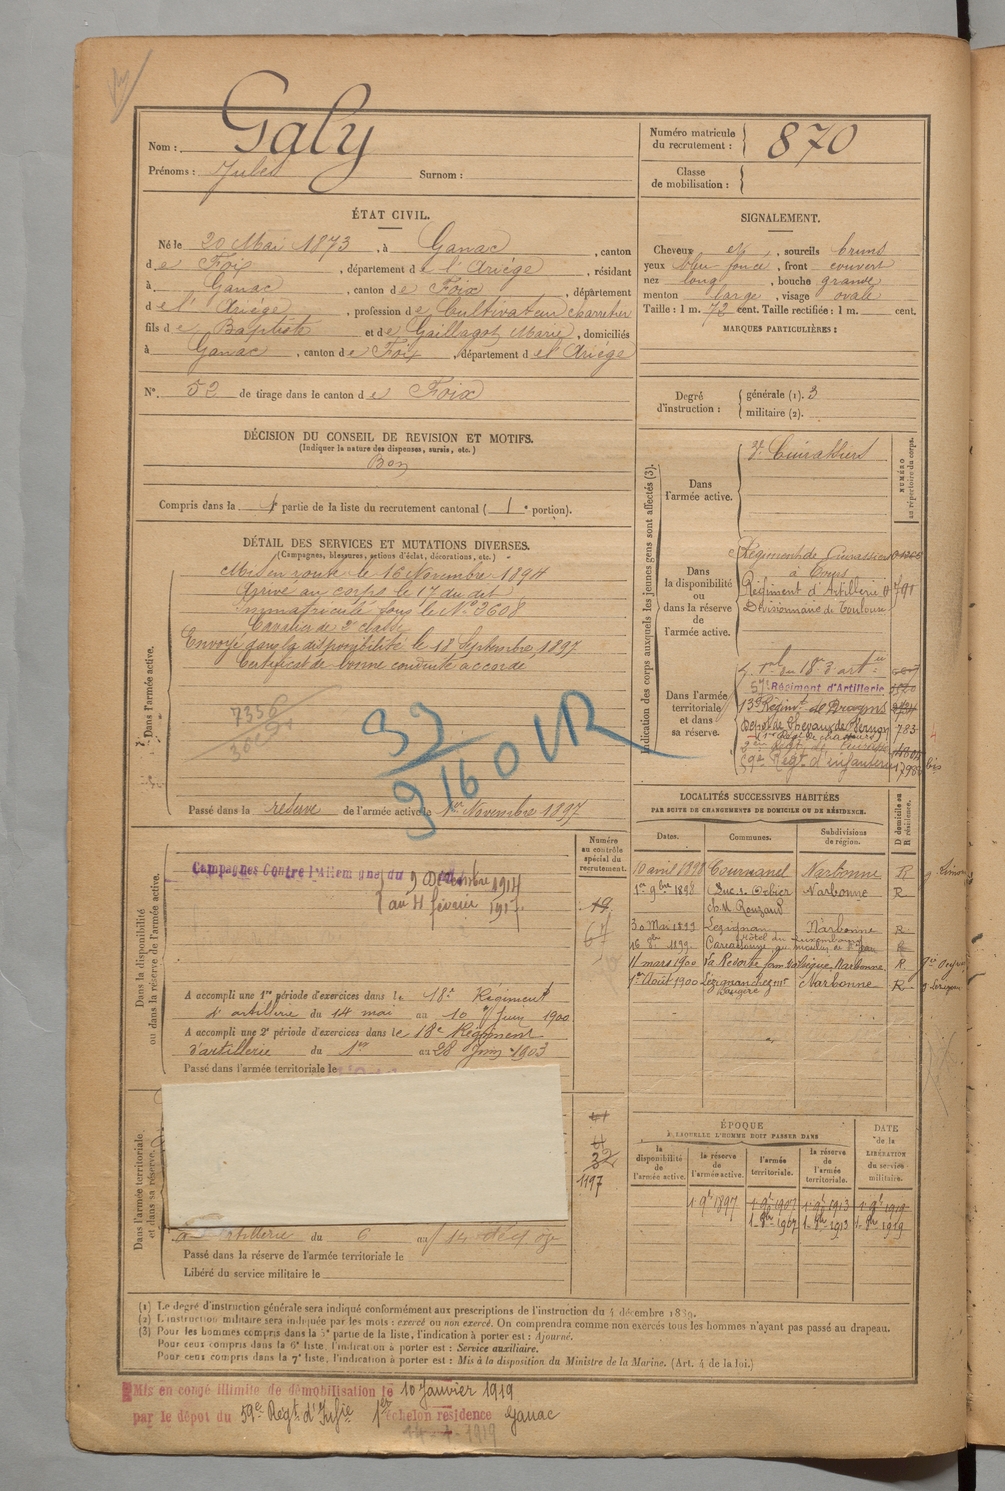 Galy
Nom :
Prénoms : Jules Surnom :
Numéro matricule du recrutement : 870
Classe de mobilisation :
ÉTAT CIVIL.
Né le 20 Mai 1873, à Ganac, canton
de Foix, département de l'Ariège, résidant
à Ganac, canton de Foix, département
de l'Ariège, profession de Cultivateur charretier
fils de Baptiste et de Gaillagot Marie, domiciliés
à Ganac, canton de Foix, département de l'Ariège
N°. 52 de tirage dans le canton de Foix
SIGNALEMENT.
Cheveux et, sourcils bruns
yeux bleu foncé, front couvert
nez long, bouche grande
menton large, visage ovale
Taille : 1 m. 73 cent. Taille rectifiée : 1 m. cent.
MARQUES PARTICULIÈRES :
Degré d'instruction : générale (1). 3
militaire (2).
DÉCISION DU CONSEIL DE REVISION ET MOTIFS.
(Indiquer la nature des dispenses, sursis, etc.)
Bon
Compris dans la 1e partie de la liste du recrutement cantonal ( 1e portion).
DÉTAIL DES SERVICES ET MUTATIONS DIVERSES.
(Campagnes, blessures, actions d'éclat, décorations, etc.)
Dans l'armée active.
Mis en route le 16 Novembre 1894
Arrivé au corps le 17 du dit
Immatriculé sous le N° 3608
Cavalier de 2e classe
Envoyé dans la disponibilité le 18 Septembre 1897
Certificat de bonne conduite accordé
7356
39
9160 VR
Passé dans la réserve de l'armée active le 1er Novembre 1897
Indication des corps auxquels les jeunes gens sont affectés (3).
NUMÉRO au répertoire du corps.
Dans l'armée active.
Cuirassiers
Dans la disponibilité ou dans la réserve de l'armée active.
Régiment de Cuirassiers
à Tours
Régiment d'Artillerie 791
Divisionnaire de Toulouse
Dans l'armée territoriale et dans sa réserve.
57e Régiment d'Artillerie
13e Régimt de Dragons
Dépot de Chevaux de Vernon 783
59e Régt d'infanterie bis
Dans la disponibilité ou dans la réserve de l'armée active.
Campagnes Contre l'Allemagne du 9 Décembre 1914
au 4 février 1917.
Numéro au contrôle spécial du recrutement.
19
67
A accompli une 1re période d'exercices dans le 18e Régiment
d'artillerie du 14 mai au 10 Juin 1900
A accompli une 2e période d'exercices dans le 18e Régiment
d'artillerie du 1er au 28 Juin 1903
Passé dans l'armée territoriale le
LOCALITÉS SUCCESSIVES HABITÉES
PAR SUITE DE CHANGEMENTS DE DOMICILE OU DE RÉSIDENCE.
Dates. Communes. Subdivisions de région. D domicile ou R résidence.
10 avril 1898 Tournanel Narbonne R
1er 9bre 1898 Luc s. Orbieu Narbonne R
ch. M. Rouzaud
30 Mai 1899 Lézignan Narbonne R
1899 Carcassonne
11 mars 1900 La Redorte Narbonne R
1er Août 1900 Lézignan Narbonne R
Dans l'armée territoriale et dans sa réserve.
32
1197
artillerie du 6 au 14
Passé dans la réserve de l'armée territoriale le
Libéré du service militaire le
ÉPOQUE
À LAQUELLE L'HOMME DOIT PASSER DANS
la disponibilité de l'armée active. la réserve de l'armée active. l'armée territoriale. la réserve de l'armée territoriale. DATE de la LIBÉRATION du service militaire.
1 9bre 1897 1 9bre 1907 1 9bre 1913 1 9bre 1919
1 9bre 1907 1 9bre 1913 1 9bre 1919
(1) Le degré d'instruction générale sera indiqué conformément aux prescriptions de l'instruction du 4 décembre 1889.
(2) L'instruction militaire sera indiquée par les mots : exercé ou non exercé. On comprendra comme non exercés tous les hommes n'ayant pas passé au drapeau.
(3) Pour les hommes compris dans la 5e partie de la liste, l'indication à porter est : Ajourné.
Pour ceux compris dans la 6e liste, l'indication à porter est : Service auxiliaire.
Pour ceux compris dans la 7e liste, l'indication à porter est : Mis à la disposition du Ministre de la Marine. (Art. 4 de la loi.)
Mis en congé illimité de démobilisation le 10 Janvier 1919
par le dépôt du 59e Régt d'Infie 1er échelon résidence Ganac